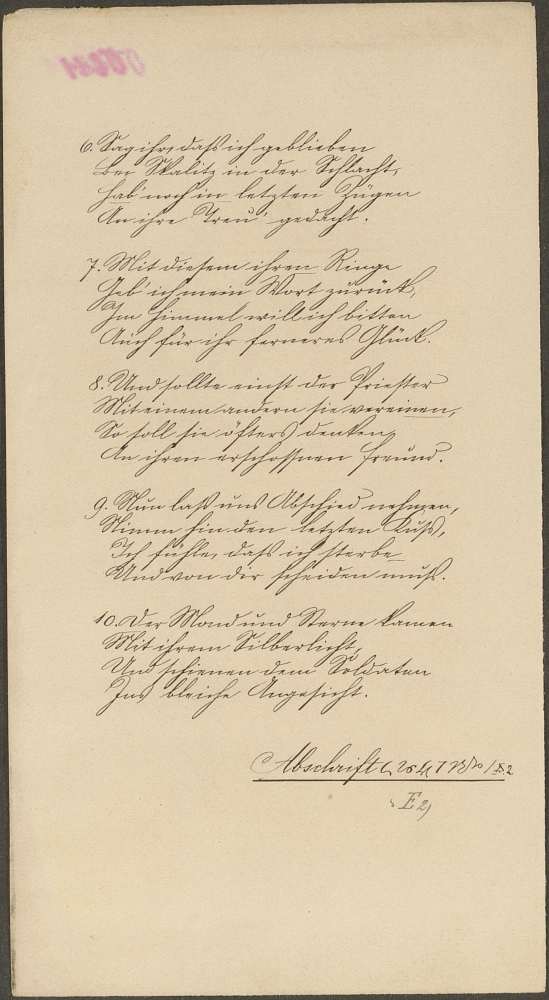 6. Sag ihr, daß ich geblieben
Bei Skalitz in der Schlacht,
Hab' noch in letzten Zügen
An ihre Treu' gedacht.
7. Mit diesem ihren Ringe
Geb' ich mein Wort zurück,
Im Himmel will ich bitten
Auch für ihr ferneres Glück.
8. Und sollte einst der Priester
Mit einem andern sie vereinen,
So soll sie öfters denken,
An ihren erschossnen Freund.
9. Nun laß uns Abschied nehmen,
Nimm hin den letzten Kuß,
Ich fühle, daß ich sterbe
Und von dir scheiden muß.
10. Der Mond und Sterne kamen
Mit ihrem Silberlicht,
Und schienen dem Soldaten
Ins bleiche Angesicht.
Abschrift
E 2)